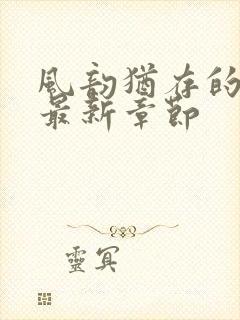 風韵猶存的
最新章節
靈冥